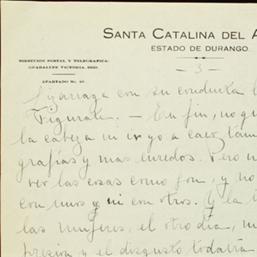 SANTA CATALINA DEL A
ESTADO DE DURANGO.
DIRECCION POSTAL Y TELEGRAFICA:
GUADALUPE VICTORIA, DGO.
APARTADO No.
- 3 -
con su conducta
Figurate. - En fin, no qu
la cabeza ni yo a caer,
grafias y mas enredos. Pero
ver las cosas como son, y no
con unos y ni con otros. Y la
las mujeres, el otro dia, m
presion y el disgusto todavia